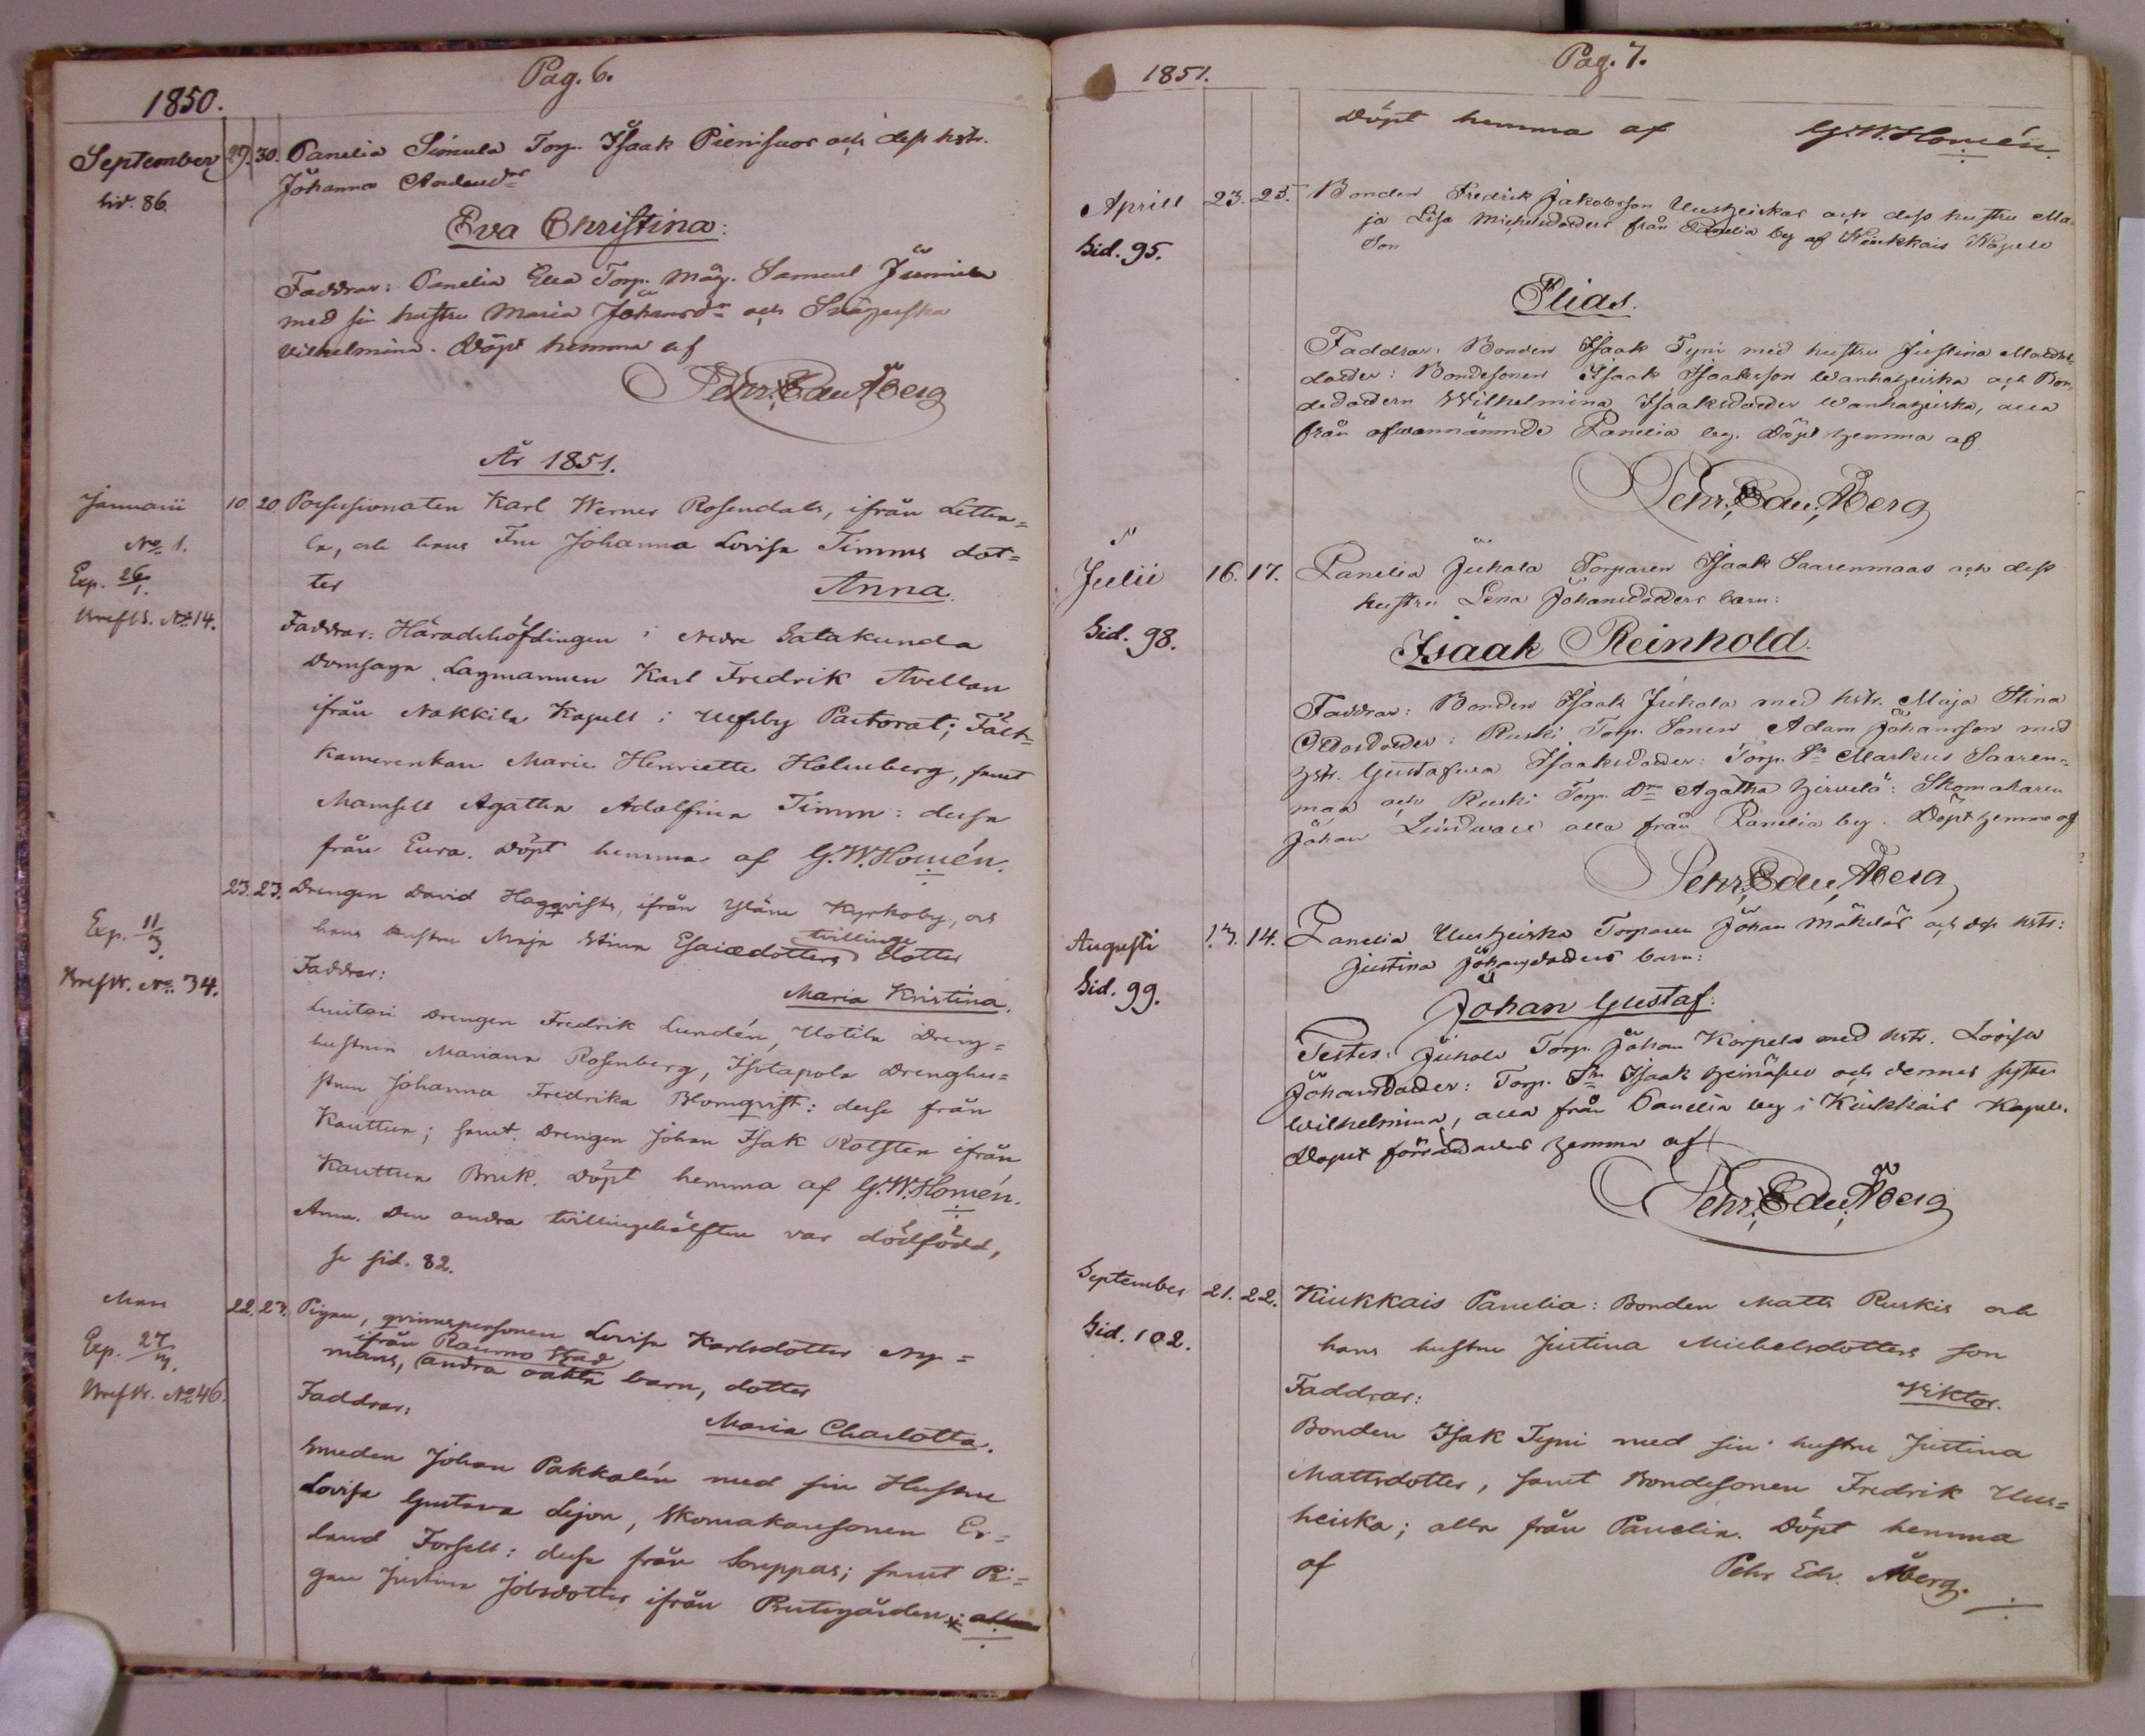 Pag. 6.
1850.
September 29. 30. Panelia Simula Torp. Isaak Pienisuos och dess hstr.
Sid. 86. Johanna
Eva Christina:
Faddrar: Panelia Torp. Måg. Samuel
med sin hustru Maria Johansdr och
Wilhelmina. Döpt hemma af
Pehr Edu. Åberg
År 1851.
Januarii 10. 20. Possessionaten Karl Werner Rosendals, ifrån Letta=
No. 1. la, och hans Fru Johanna Lovisa Timms dot=
Exp. 26/1. ter Anna.
Brefb. No 14.
Faddrar: Häradshöfdingen i Nedre Satakunda
Domsaga Lagmannen Karl Fredrik Avellan
ifrån Nakkila Kapell i Ulfsby Pastorat; Fält=
kamrerskan Marie Henriette Holmberg, samt
Mamsell Agatha Adolfina Timm: dessa
från Eura. Döpt hemma af G.W. Homén.
23. 23. Drengen David Haggqvists, ifrån Yläne Kyrkoby, och
Exp. 11/3. hans hustru Maja Stina Esaiædotters tvillinge dotter
Brefb. No. 34. Faddrar:
Maria Kristina.
Luutari Drengen Fredrik Lundén, Uotila Dreng=
hustrun Mariana Rosenberg, Isotapola Drenghu=
strun Johanna Fredrika Blomqvist: desse från
Kauttua; samt Drengen Johan Isak Rotsten ifrån
Kauttua Bruk. Döpt hemma af G.W. Homén.
Anm. Den andra tvillingehälften var dödfödd,
se sid. 82.
Mars 22. 23. Pigan, qvinnspersonen Lovisa Karlsdotter Ny=
ifrån Raumo Stad
Exp. 27/3. mans, andra oäkta barn, dotter
Brefb. No 46. Faddrar:
Maria Charlotta.
Smeden Johan Pakkalén med sin Hustru
Lovisa Gustava Lejon, Skomakaresonen Er=
land Forsell: dessa från Souppas; samt Pi=
gan Justina Jobsdotter ifrån Prutsgården:
1851. Pag. 7.
Döpt hemma af G.W. Homén.
Aprill 23. 25. Bonden Fredrik Jakobsson Uusheiskas och dess hustru Ma=
Sid. 95. ja Lisa Michelsdotters från Panelia by af Kiukkais Kapell
Son
Elias.
Faddrar: Bonden Isaak Tyni med hustru Justina Matts
dotter: Bondesonen Isaak Isaaksson Wanhaheiska och Bon=
dedottern Wilhelmina Isaaksdotter Wanhaheiska, alla
från ofwannämnde Panelia by. Döpt hemma af
Pehr Edu. Åberg
Julii 16. 17. Panelia Juhola Torparen Isaak Saarenmaas och dess
hustru Lena Johansdotters barn:
Sid. 98. Isaak Reinhold.
Faddrar: Bonden Isaak Juhola med hstr. Maja Stina
: Ruski Torp. Sonen Adam Johansson med
hstr. Gustafwa Isaaksdotter: Torp. Sn Markus Saaren=
maa och Ruski Torp. Drn Agatha Hirvelä: Skomakaren
Johan Lindwall alla från Panelia by. Döpt hemma af
Pehr Edu. Åberg
Augusti 13. 14. Panelia Uusheiska Torparen Johan Mäkeläs och dess hstr:
Justina Johansdotters barn:
Sid. 99.
Johan Gustaf:
Testes: Juhola Torp. Johan Korpela med hstr. Lovisa
Johansdotter: Torp. Sn Isaak och dennes syster
Wilhelmina, alla från Panelia by i Kiukkais Kapell.
hemma af
Pehr Edu. Åberg
September 21. 22. Kiukkais Panelia: Bonden Matts Ruskis och
Sid. 102. hans hustru Justina Michelsdotters son
Faddrar: Viktor.
Bonden Isak Tyni med sin hustru Justina
Mattsdotter, samt Bondesonen Fredrik Uus=
heiska; alla från Panelia. Döpt hemma
af Pehr Edv. Åberg.